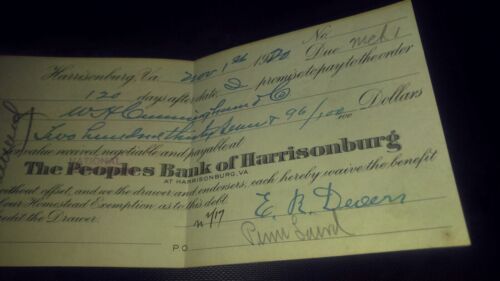 No.
Harrisonburg, Va. Nov 1st 1920 Due Mch 1
120 days after date, I promise to pay to the order
W H Cunningham & Co
Two hundred thirty & 96/100 Dollars
value received, negotiable and payable at
NATIONAL
The Peoples Bank of Harrisonburg
AT HARRISONBURG, VA.
without offset, and we the drawer and endorsers, each hereby waive the benefit
our Homestead Exemption as to this debt
credit the Drawer.
E. R. Devers
P.O.